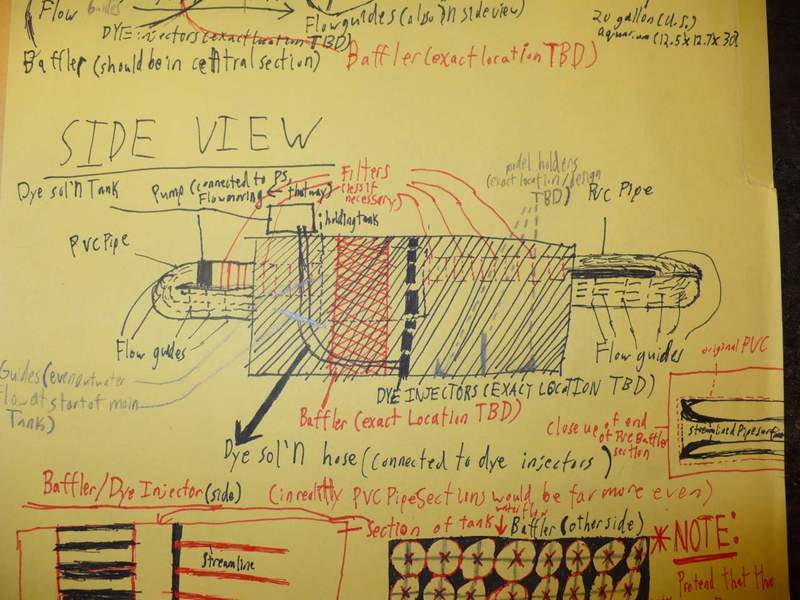 Flow Guides
Flow guides (also in side view)
DYE injectors (exact Location TBD)
20 gallon (U.S.)
aquarium (12.5 x 12.7 x 30
Baffler (should be in central section)
Baffler (exact location TBD)
SIDE VIEW
Dye sol'n Tank
Pump (connected to PS,
Flow moving ← that way)
Filters
(less if
necessary)
model holders
(exact location/design
TBD)
PVC PIPE
holding tank
PVC PIPE
Flow guides
Flow guides
original PVC
Guides (even out water
flow at start of main
Tank)
DYE INJECTORS (EXACT LOCATION TBD)
Baffler (exact Location TBD)
close up of end
of PVC Baffler
section
streamlined Pipe surface
Dye sol'n hose (connected to dye injectors)
Baffler/Dye Injector (side)
(in reality PVC Pipe Sections would be far more even)
Section of tank
water flow
Baffler (other side)
* NOTE:
Streamline
Pretend that the